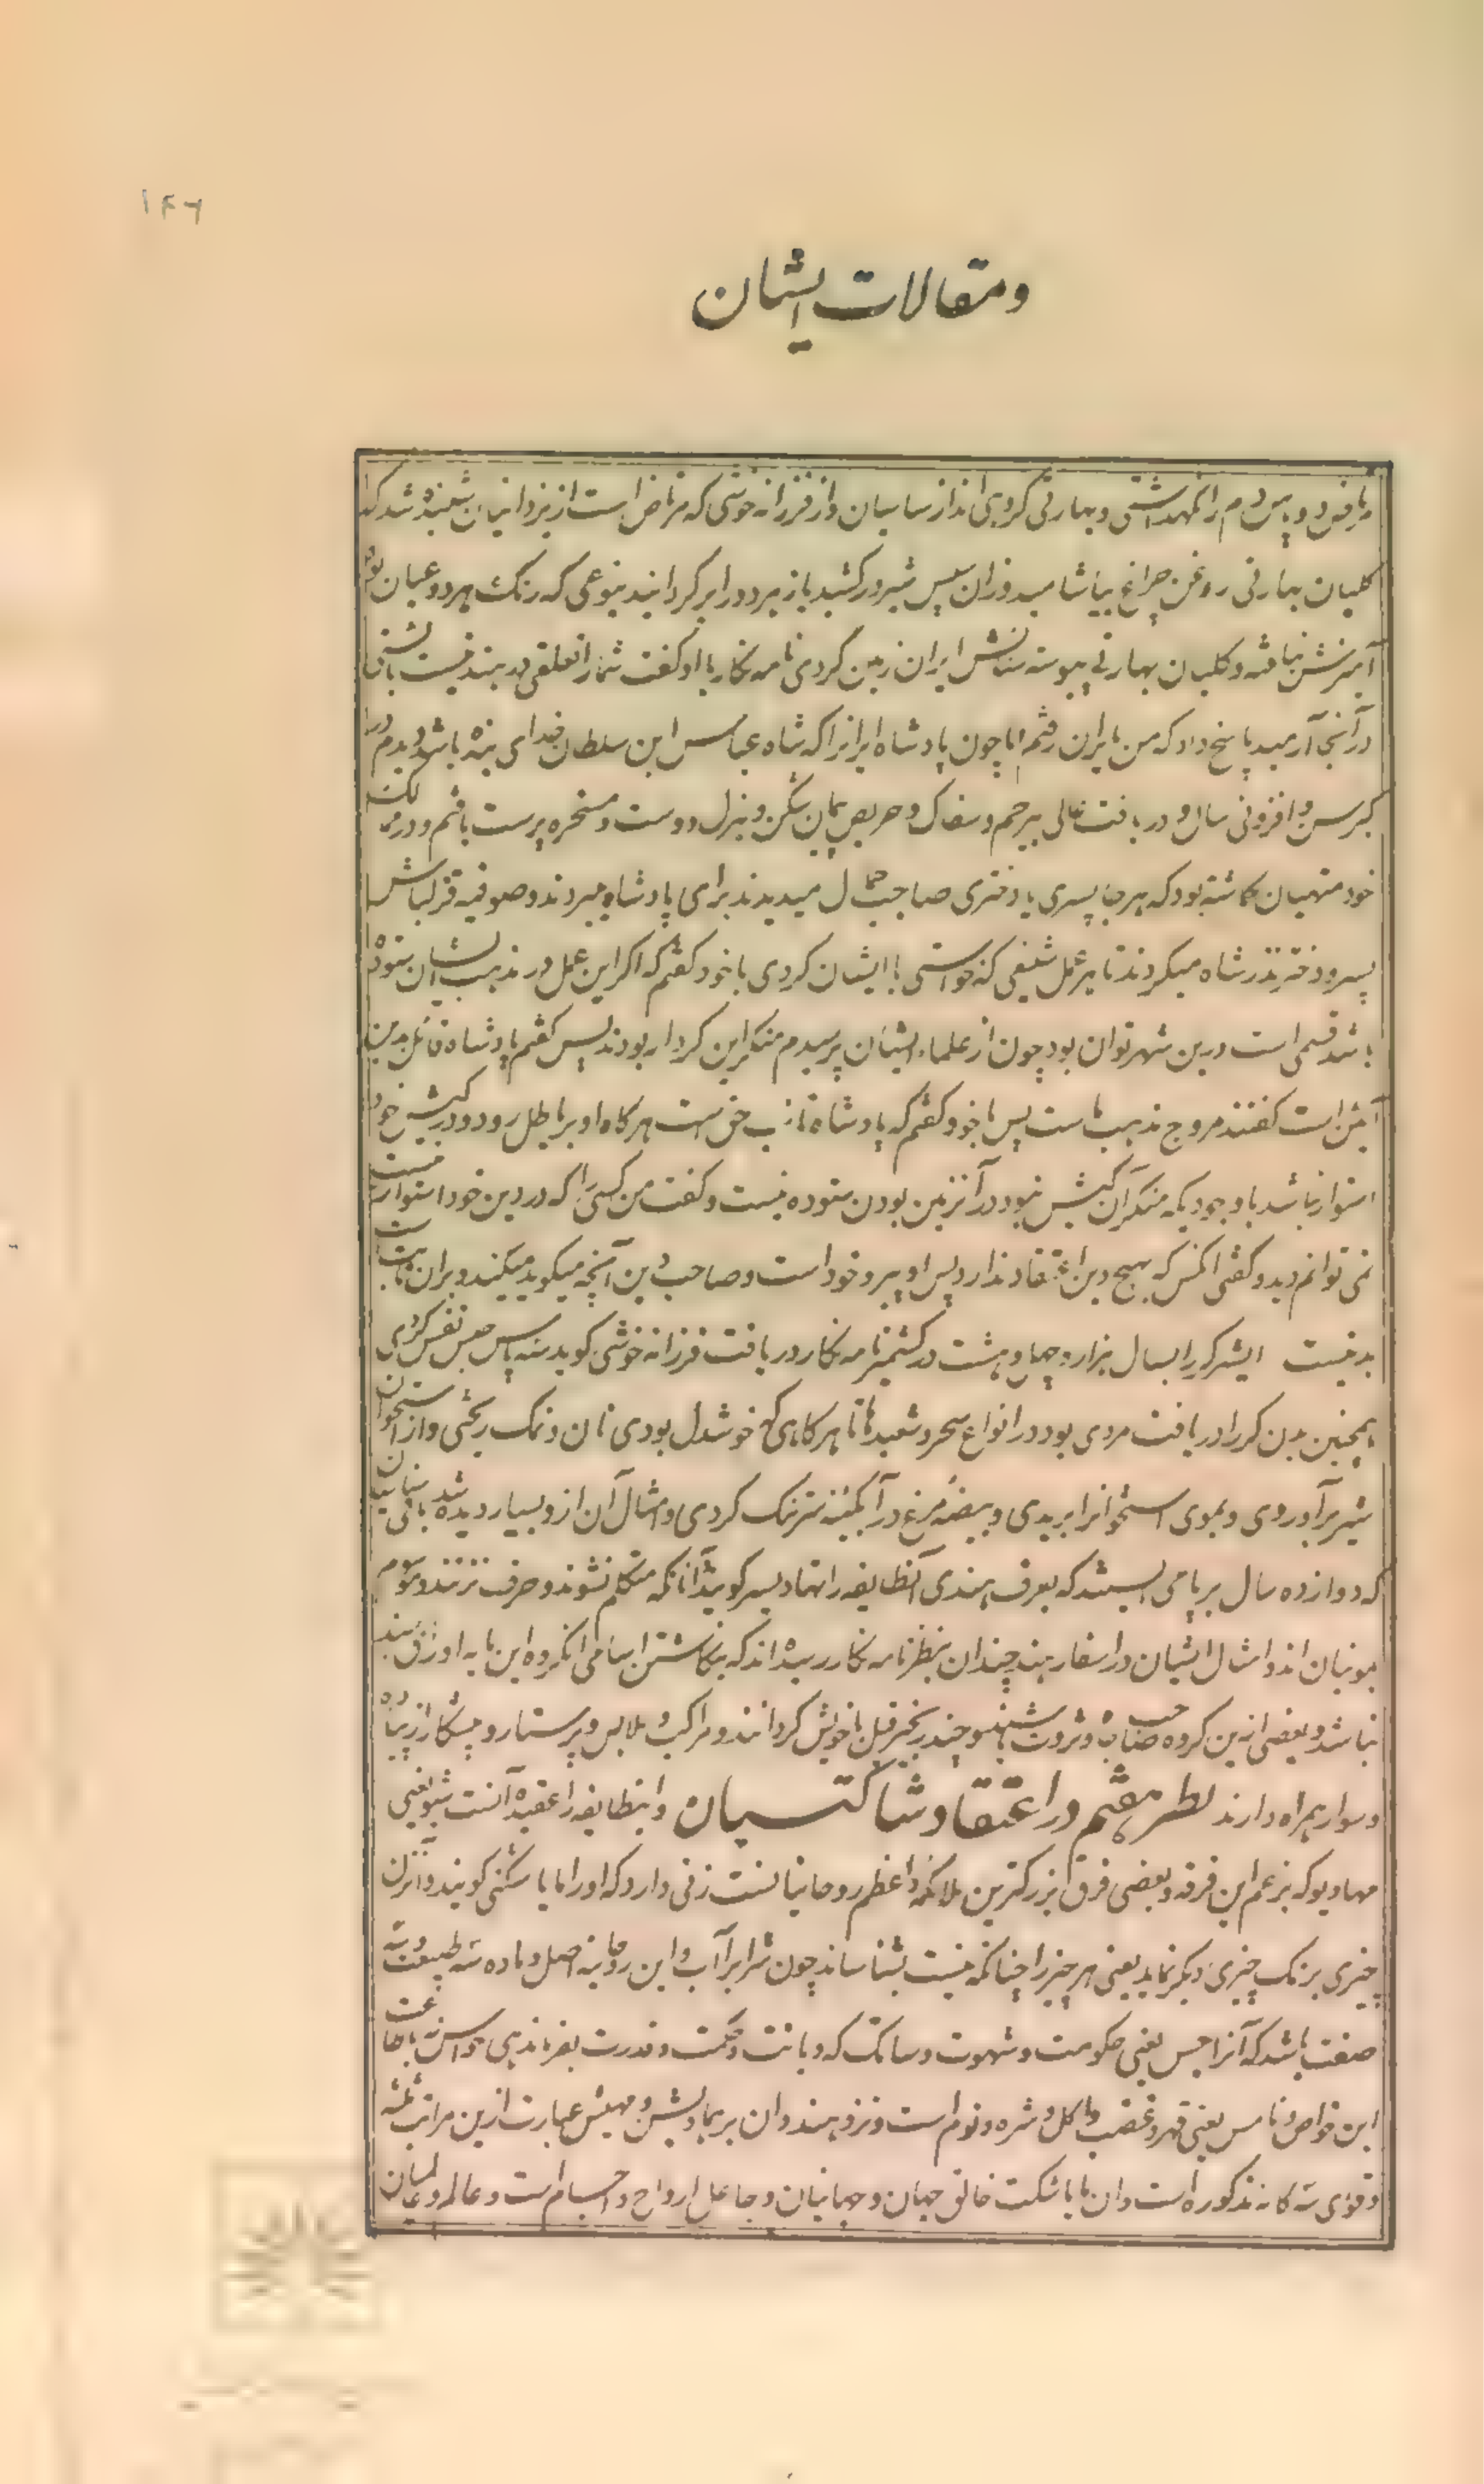 ۱۴۶
ومقالات ایشان
دو پاس دم را نگهداشتی و بهارتی گروهی اند از سناسیان و از فرزانه خوشی که مرتاض است از یزدانیان شنیده شد که
کلیان بهارتی روغن چراغ بیاشامید وزان سپس شیر درکشید باز هر دو را برگردانید بنوعی که رنگ هر دو عیان بود
آمیزش نیافته و کلیان بهارتی پیوسته ستایش ایران زمین کردی نامه نگار با او گفت شما را تعلقی به هند نیست
در آنجا آرمید پاسخ داد که من بایران رفتم اما چون پادشاه ایرانرا که شاه عباس ابن سلطان خدای بنده باشد دیدم
کبر سن و افزونی سال و دریافت عالی بیرحم و سفاک و حریص پیمان شکن و هزل دوست و مسخره پرست یافتم و در مملکت
خود منهیان گماشته بود که هر جا پسری یا دختری صاحب جمال میدیدند برای پادشاه میبردند و صوفیه قزلباش
پسر و دختر نذر شاه میکردند تا هر عمل شنیعی که خواستی با ایشان کردی با خود گفتم که اگر این عمل در مذهب ایشان ستوده
باشد قسمی است درین شهر توان بود چون از علماء ایشان پرسیدم منکر این کردار بودند پس گفتم پادشاه قائل بدین
آئین است گفتند مروج مذهب ماست پس با خود گفتم که پادشاه نائب حق است هرگاه او بر باطل رود و در کیش خود
استوار نباشد باوجودیکه منکر آن کیش نبود در آنزمین بودن ستوده نیست و گفت من کسی را که در دین خود استوار نیست
نمی توانم دید و گفتی آنکس که بهیچ دین اعتقاد ندارد پس او پیرو خود است و صاحب دین آنچه میگوید میکند و بران ثابت
بد نیست ایشر کر را بسال هزار و چهل و هشت در کشمیر نامه نگار دریافت فرزانه خوشی گوید سه پاس حبس نفس کردی
همچنین مدن کر را دریافت مردی بود در انواع سحر و شعبدها تا هرگاهی که خوشدل بودی نان و نمک ریختی و از استخوان
شیر برآوردی و بموی استخوانرا بریدی و بیضه مرغ در آبگینه سر تنگ کردی و امثال آن ازو بسیار دیده شد باقی سناسیان
که دوازده سال بر پا می ایستند که بعرف هندی آنطایفه را تهادیسر گویند آنانکه متکلم نشوند و حرف نزنند موسوم
بمونیان اند و امثال ایشان در اسفار هند چندان بنظر نامه نگار رسیده اند که بنگاشتن اسامی آنگروه این مایه اوراق بسند
نباشد و بعضی ازین گروه صاحب جاه و ثروت باشند و چند زنجیر فیل با خویش گردانند و مراکب و ملابس و پرستار و پیشکار از پیاده
و سوار همراه دارند نظر هفتم در اعتقاد شاکتسیان و اینطایفه را عقیده آنست شیو یعنی
مهادیو که بزعم این فرقه و بعضی فرق بزرگترین ملائکه و اعظم روحانیانست زنی دارد که او را مایا شکتی گویند و آنزن
چیزی برنگ چیزی دیگر نماید یعنی هر چیز را چنانکه نیست بشناساند چون شرابرا آب و این روحانیه اصل و ماده سه طبیعت و سه
صفت باشد که آنرا راجس یعنی حکومت و شهوت و ساتک که دیانت و حکمت و قدرت بفرماندهی حواس نه باطاعت
این خواص و تامس یعنی قهر و غضب و اکل و شره و نوم است و نزد هندوان برهما و بشن و مهیش عبارت ازین مراتب ثلثه
و قوی سه گانه مذکوره است و ان مایا شکت خالق جهان و جهانیان و جاعل ارواح و اجسام است و عالم و عالمیان